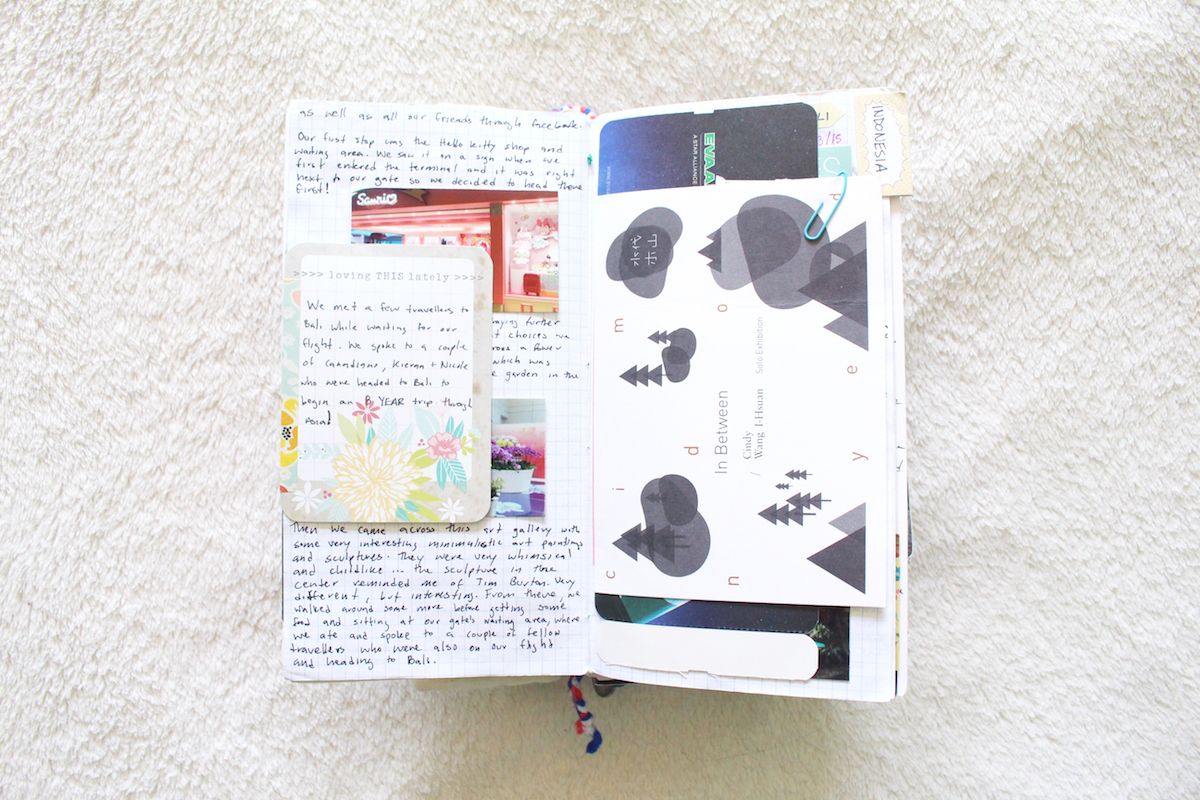 as well as all our friends through facebook.
Our first stop was the Hello Kitty shop and
waiting area. We saw it on a sign when we
first entered the terminal and it was right
next to our gate so we decided to head there
first!
Sanrio
>>>> loving THIS lately >>>>
We met a few travellers to
Bali while waiting for our
flight. We spoke to a couple
of Canadians, Kieran + Nicole
who were headed to Bali to
begin an 8 YEAR trip through
Asia!
further
choices
which was
garden in the
Then we came across this art gallery with
some very interesting minimalistic art paintings
and sculptures. They were very whimsical
and childlike ... the sculpture in the
center reminded me of Tim Burton. Very
different, but interesting. From there, we
walked around some more before getting some
food and sitting at our gate's waiting area, where
we ate and spoke to a couple of fellow
travellers who were also on our flight
and heading to Bali.
EVAA
A STAR ALLIANCE
LI
3/15
INDONESIA
木山
水代
cindy
moode
n y
In Between
Solo Exhibition
/ Cindy
Wang I-Hsuan